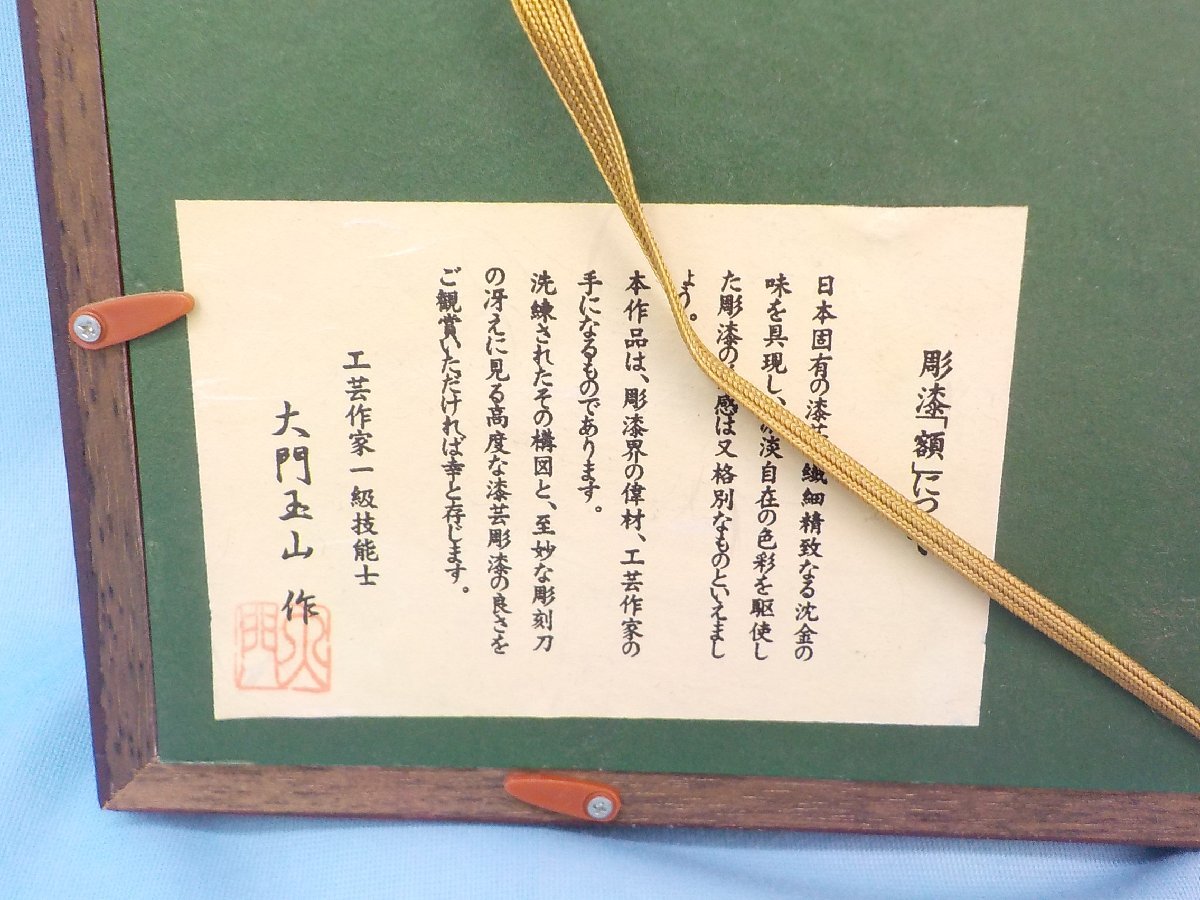 彫漆「額」につ
日本固有の漆 繊細精致なる沈金の
味を具現し、 淡自在の色彩を駆使し
た彫漆の 感は又格別なものといえまし
ょう。
本作品は、彫漆界の偉材、工芸作家の
手になるものであります。
洗練されたその構図と、至妙な彫刻刀
の冴えに見る高度な漆芸彫漆の良さを
ご観賞いただければ幸と存じます。
工芸作家一級技能士
大門玉山 作
大門